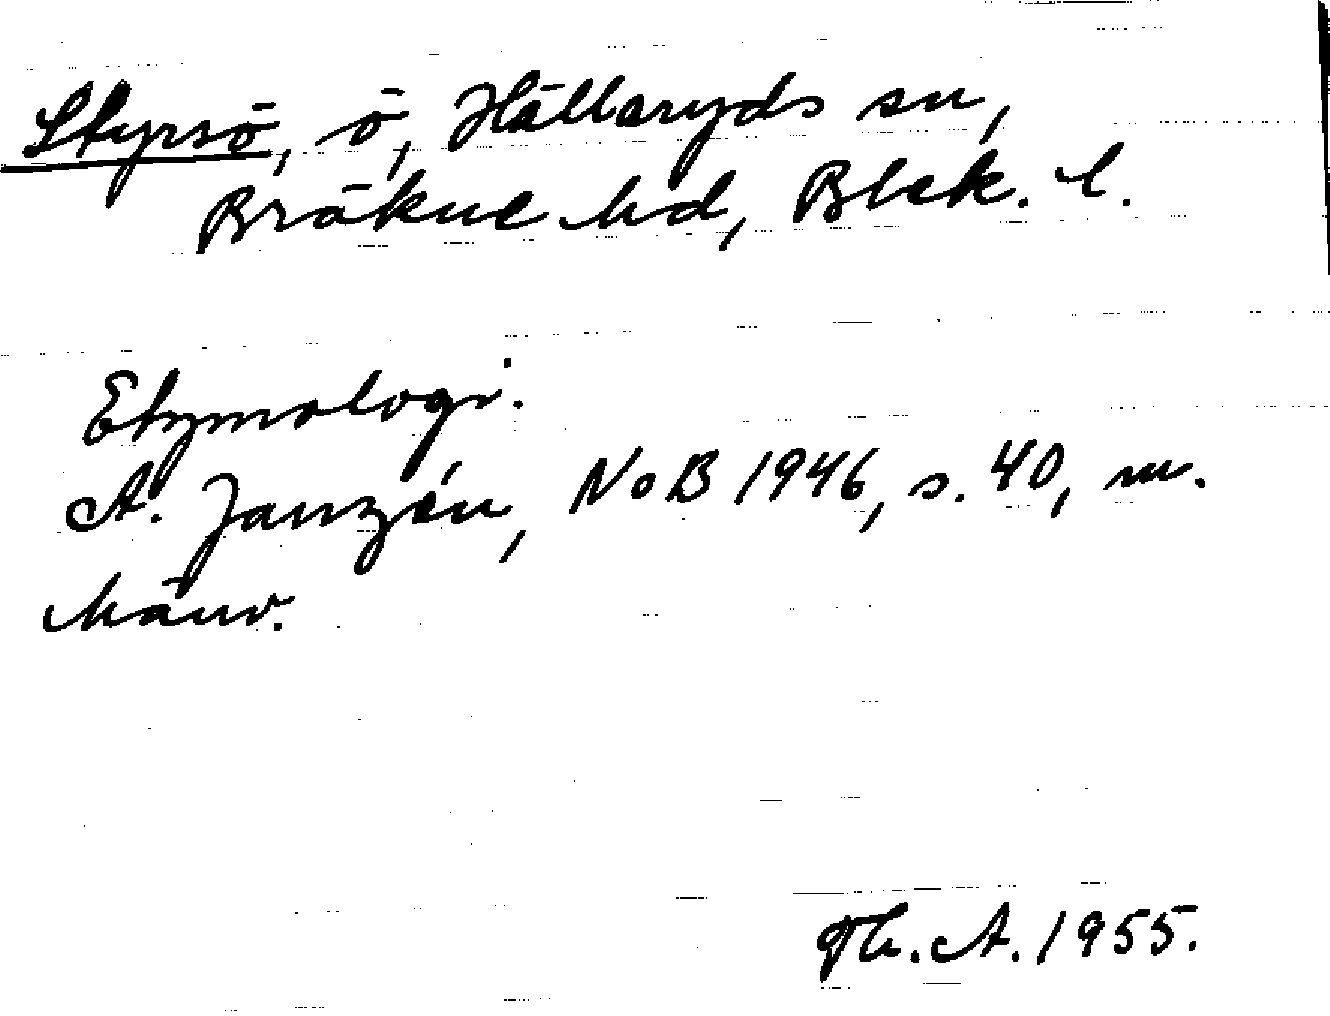 Styrsö, ö, Hällaryds sn,
Bräkne hd, Blek. l.
Etymologi.
A. Janzén, NoB 1946, s. 40, m.
hänv.
Th. A. 1955.